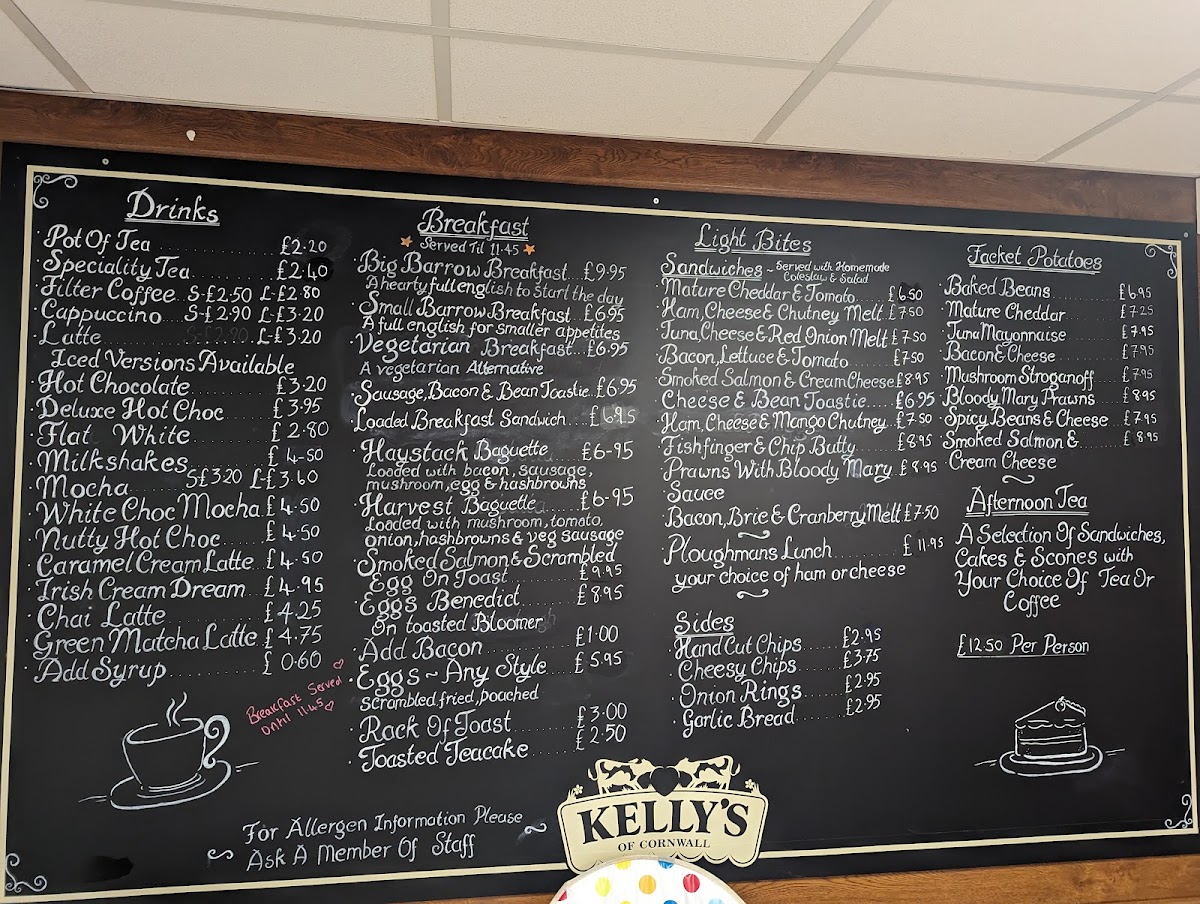 Drinks
Pot Of Tea £2.20
Speciality Tea £2.40
Filter Coffee S-£2.50 L-£2.80
Cappuccino S-£2.90 L-£3.20
Latte S-£2.90 L-£3.20
Iced Versions Available
Hot Chocolate £3.20
Deluxe Hot Choc £3.95
Flat White £2.80
Milkshakes £4-50
Mocha S-£3.20 L-£3.60
White Choc Mocha £4.50
Nutty Hot Choc £4.50
Caramel Cream Latte £4.50
Irish Cream Dream £4.95
Chai Latte £4.25
Green Matcha Latte £4.75
Add Syrup £0.60
Breakfast Served
Until 11.45
For Allergen Information Please
Ask A Member Of Staff
Breakfast
Served Til 11.45
Big Barrow Breakfast £9.95
A hearty full english to start the day
Small Barrow Breakfast £6.95
A full english for smaller appetites
Vegetarian Breakfast £6.95
A vegetarian Alternative
Sausage, Bacon & Bean Toastie £6.95
Loaded Breakfast Sandwich £6.95
Haystack Baguette £6-95
Loaded with bacon, sausage,
mushroom, egg & hashbrowns
Harvest Baguette £6-95
Loaded with mushroom, tomato,
onion, hashbrowns & veg sausage
Smoked Salmon & Scrambled
Egg On Toast £9.95
Eggs Benedict £8.95
On toasted Bloomer
Add Bacon £1.00
Eggs ~ Any Style £5.95
scrambled, fried, poached
Rack Of Toast £3.00
Toasted Teacake £2.50
Light Bites
Sandwiches ~ Served with Homemade
Coleslaw & Salad
Mature Cheddar & Tomato £6.50
Ham, Cheese & Chutney Melt £7.50
Tuna, Cheese & Red Onion Melt £7.50
Bacon, Lettuce & Tomato £7.50
Smoked Salmon & Cream Cheese £8.95
Cheese & Bean Toastie £6.95
Ham, Cheese & Mango Chutney £7.50
Fishfinger & Chip Butty £8.95
Prawns With Bloody Mary £8.95
Sauce
Bacon, Brie & Cranberry Melt £7.50
Ploughmans Lunch £11.95
your choice of ham or cheese
Sides
Hand Cut Chips £2.95
Cheesy Chips £3.75
Onion Rings £2.95
Garlic Bread £2.95
Jacket Potatoes
Baked Beans £6.95
Mature Cheddar £7.25
Tuna Mayonnaise £7.95
Bacon & Cheese £7.95
Mushroom Stroganoff £7.95
Bloody Mary Prawns £8.95
Spicy Beans & Cheese £7.95
Smoked Salmon & £8.95
Cream Cheese
Afternoon Tea
A Selection Of Sandwiches,
Cakes & Scones with
Your Choice Of Tea Or
Coffee
£12.50 Per Person
KELLY'S
OF CORNWALL